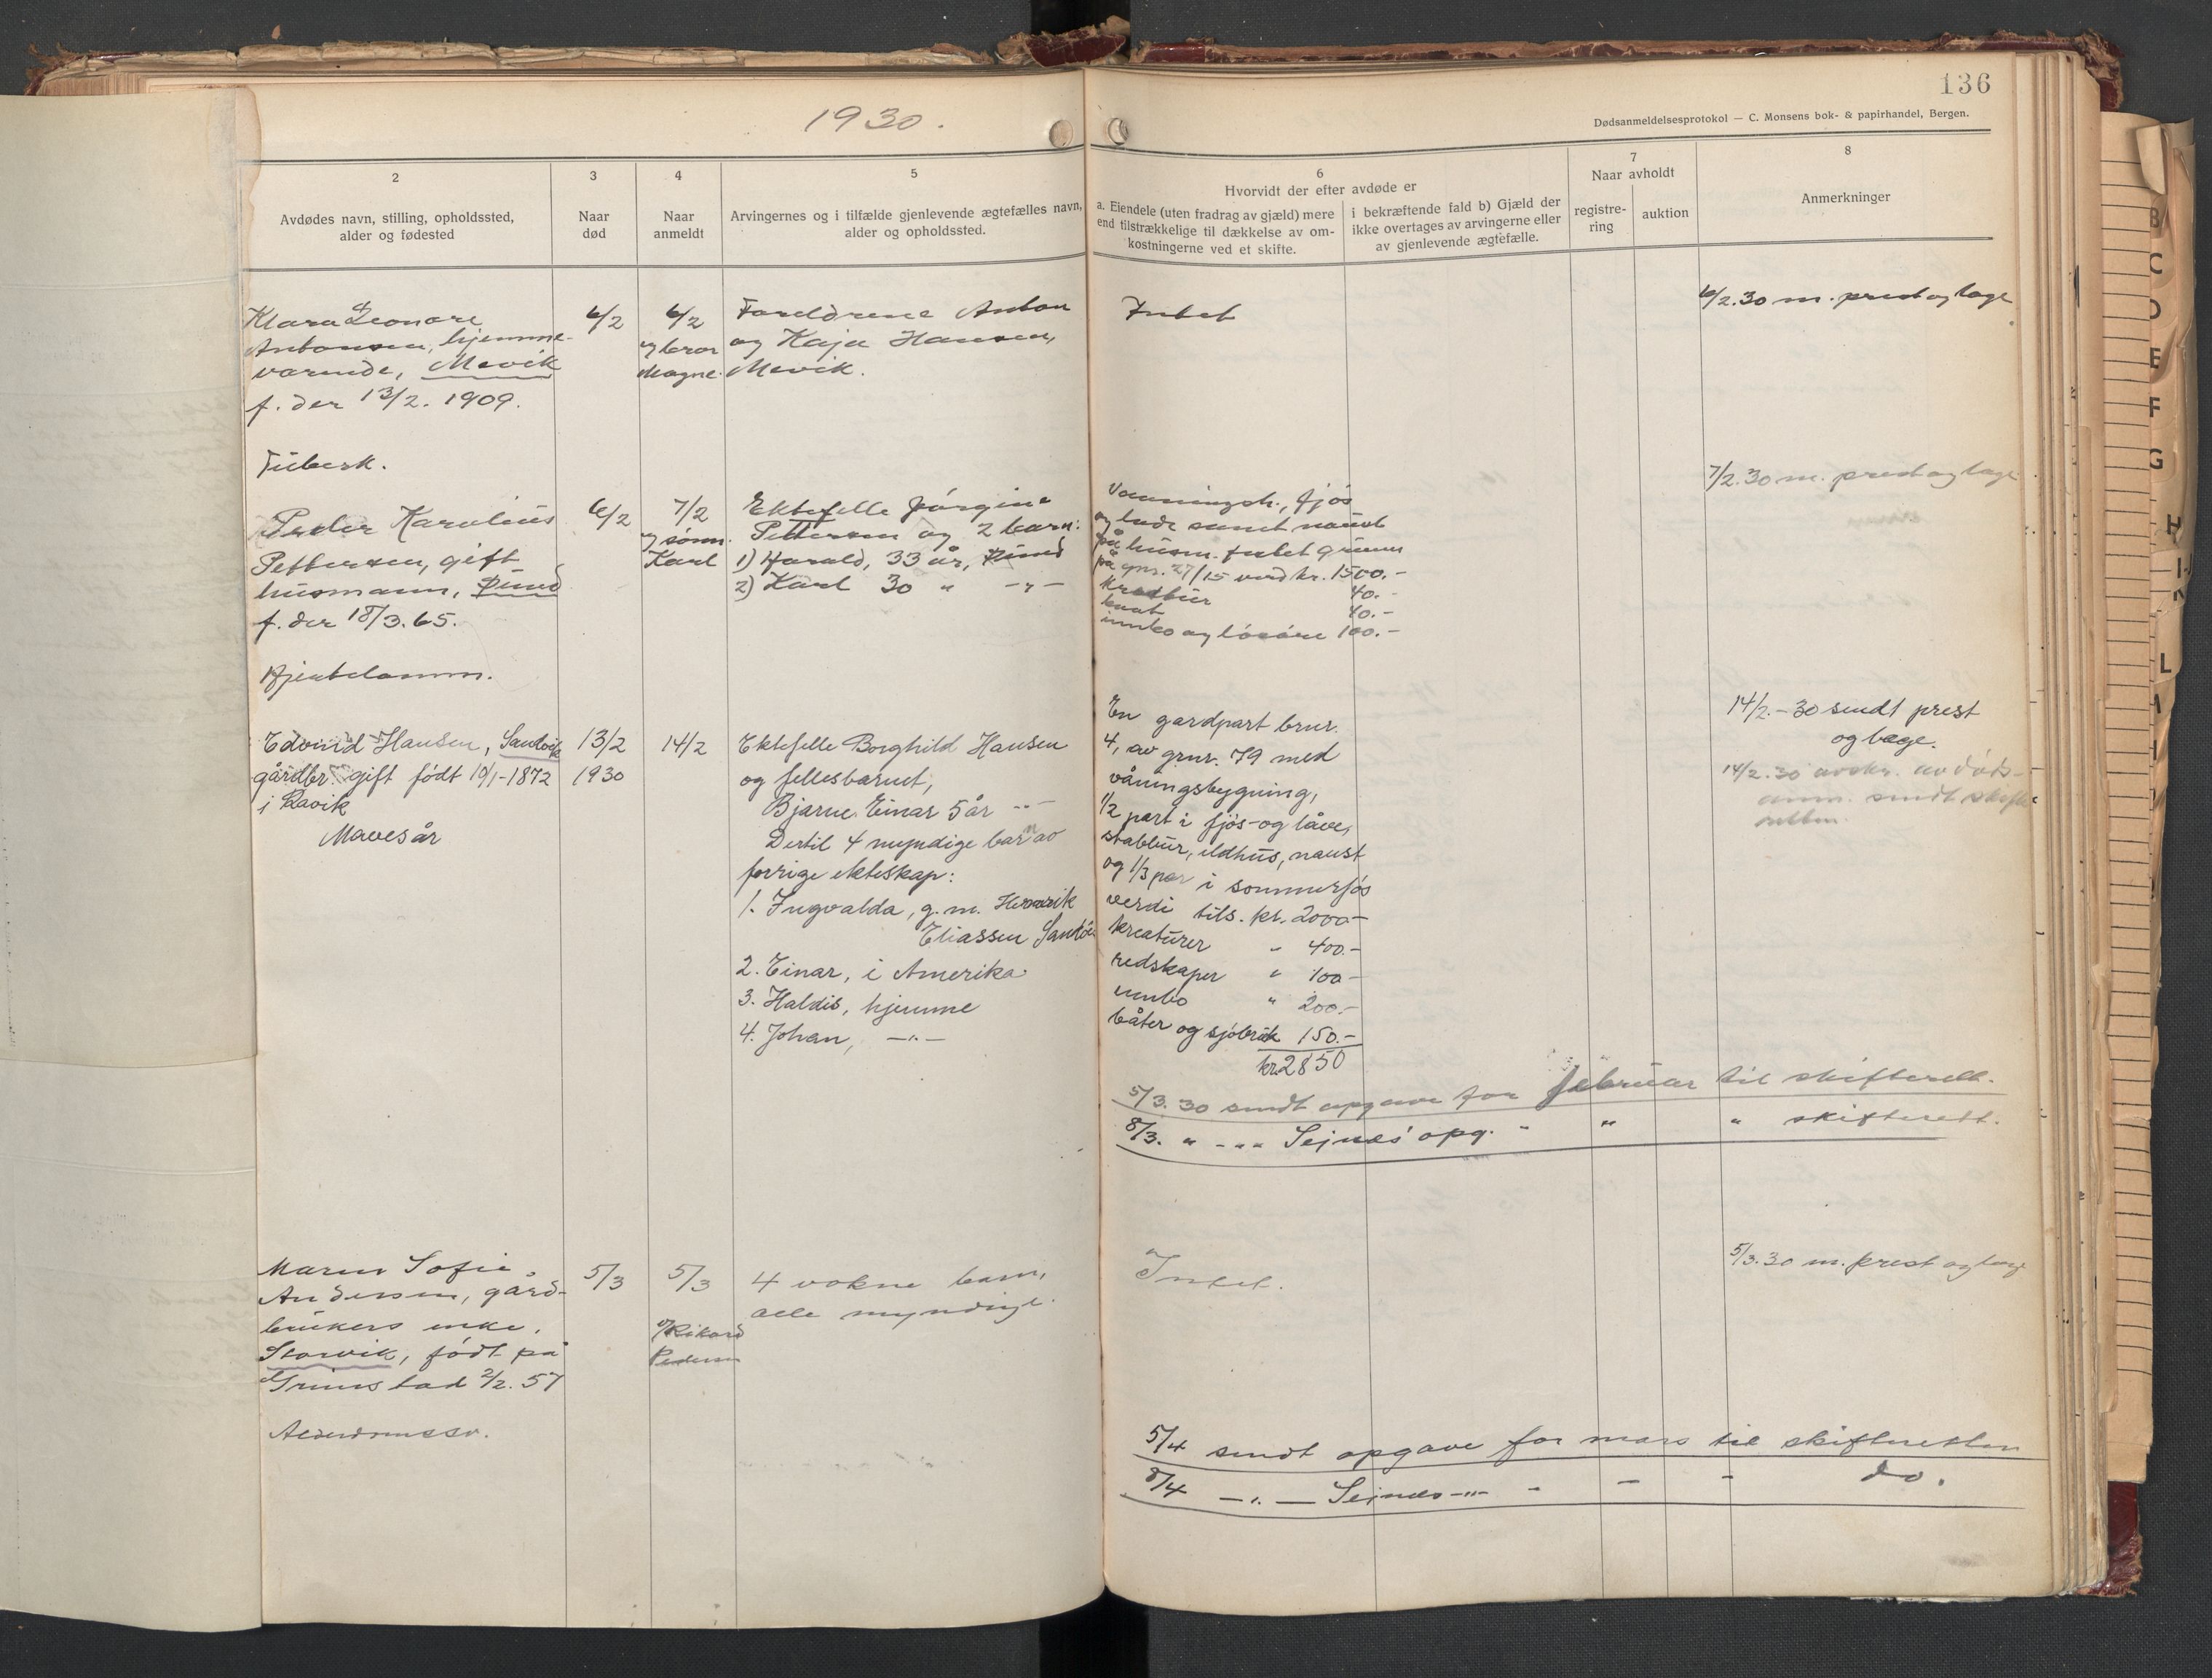 136
1930.
Dødsanmeldelsesprotokol — C. Monsens bok- & papirhandel, Bergen.
2
Avdødes navn, stilling, opholdssted,
alder og fødested
3
Naar
død
4
Naar
anmeldt
5
Arvingernes og i tilfælde gjenlevende ægtefælles navn,
alder og opholdssted.
6
Hvorvidt der efter avdøde er
a. Eiendele (uten fradrag av gjæld) mere
end tilstrækkelige til dækkelse av om-
kostningerne ved et skifte.
i bekræftende fald b) Gjæld der
ikke overtages av arvingerne eller
av gjenlevende ægtefælle.
7
Naar avholdt
registre-
ring
auktion
8
Anmerkninger
Klara Leonore
Antonsen, hjemme-
værende, Mevik
f. der 13/2. 1909.
Tuberk.
6/2
6/2
v/ bror
Magne.
Foreldrene Anton
og Kaja Hansen,
Mevik.
Intet
6/2.30 m. prest og læge
Peder Karolius
Pettersen, gift
husmann, Sund
f. der 18/3.65.
Hjertelamm.
6/2
7/2
v/ sønn.
Karl
Ektefelle Jørgine
Pettersen og 2 barn:
1) Harald, 33 år, Sund
2) Karl 30 " -"-
Vaaningsh., fjøs
og lade samt naust
på husm. festet grunn
på gnr. 27/15 verd kr. 1500.-
40.-
40.-
innbo og løsøre 100.-
7/2.30 m. prest og læge
Edvind Hansen, Sandvik
gårdbr. gift født 10/1-1872
i Ravik
Mavesår
13/2
1930
14/2
Ektefelle Borghild Hansen
og fellesbarnet,
Bjarne Einar 5 år -"-
Dertil 4 myndige barn av
forrige ekteskap:
1. Ingvalda, g.m. Henrik
Eliassen
2. Einar, i Amerika
3. Haldis, hjemme
4. Johan, -"-
En gardpart brnr.
4, av grnr. 79 med
våningsbygning,
1/2 part i fjøs-og låve,
stabbur, ildhus, naust
og 1/3 par i sommerfjøs
verdi tils. kr. 2000-
kreaturer " 400.-
redskaper " 100-
innbo " 200.-
båter og sjøbruk 150.-
kr. 2850
14/2.-30 sendt prest
og læge.
14/2.30 avskr. av døds-
anm. sendt skifte
retten.
5/3.30 sendt opgave for februar til skifterett.
8/3. " -"- Seines' opg. " " " skifterett.
Maren Sofie
Andersen, gård-
brukers enke,
Storvik, født på
Grimstad 2/2.57
Alderdomssv.
5/3
5/3
v/ Rikard
Pedersen
4 voksne barn,
alle myndige.
Intet.
5/3.30 m. prest og læge
5/4 sendt opgave for mars til skifteretten
8/4 -"- Seines -"- " - - do.
B
C
D
E
F
G
H
L